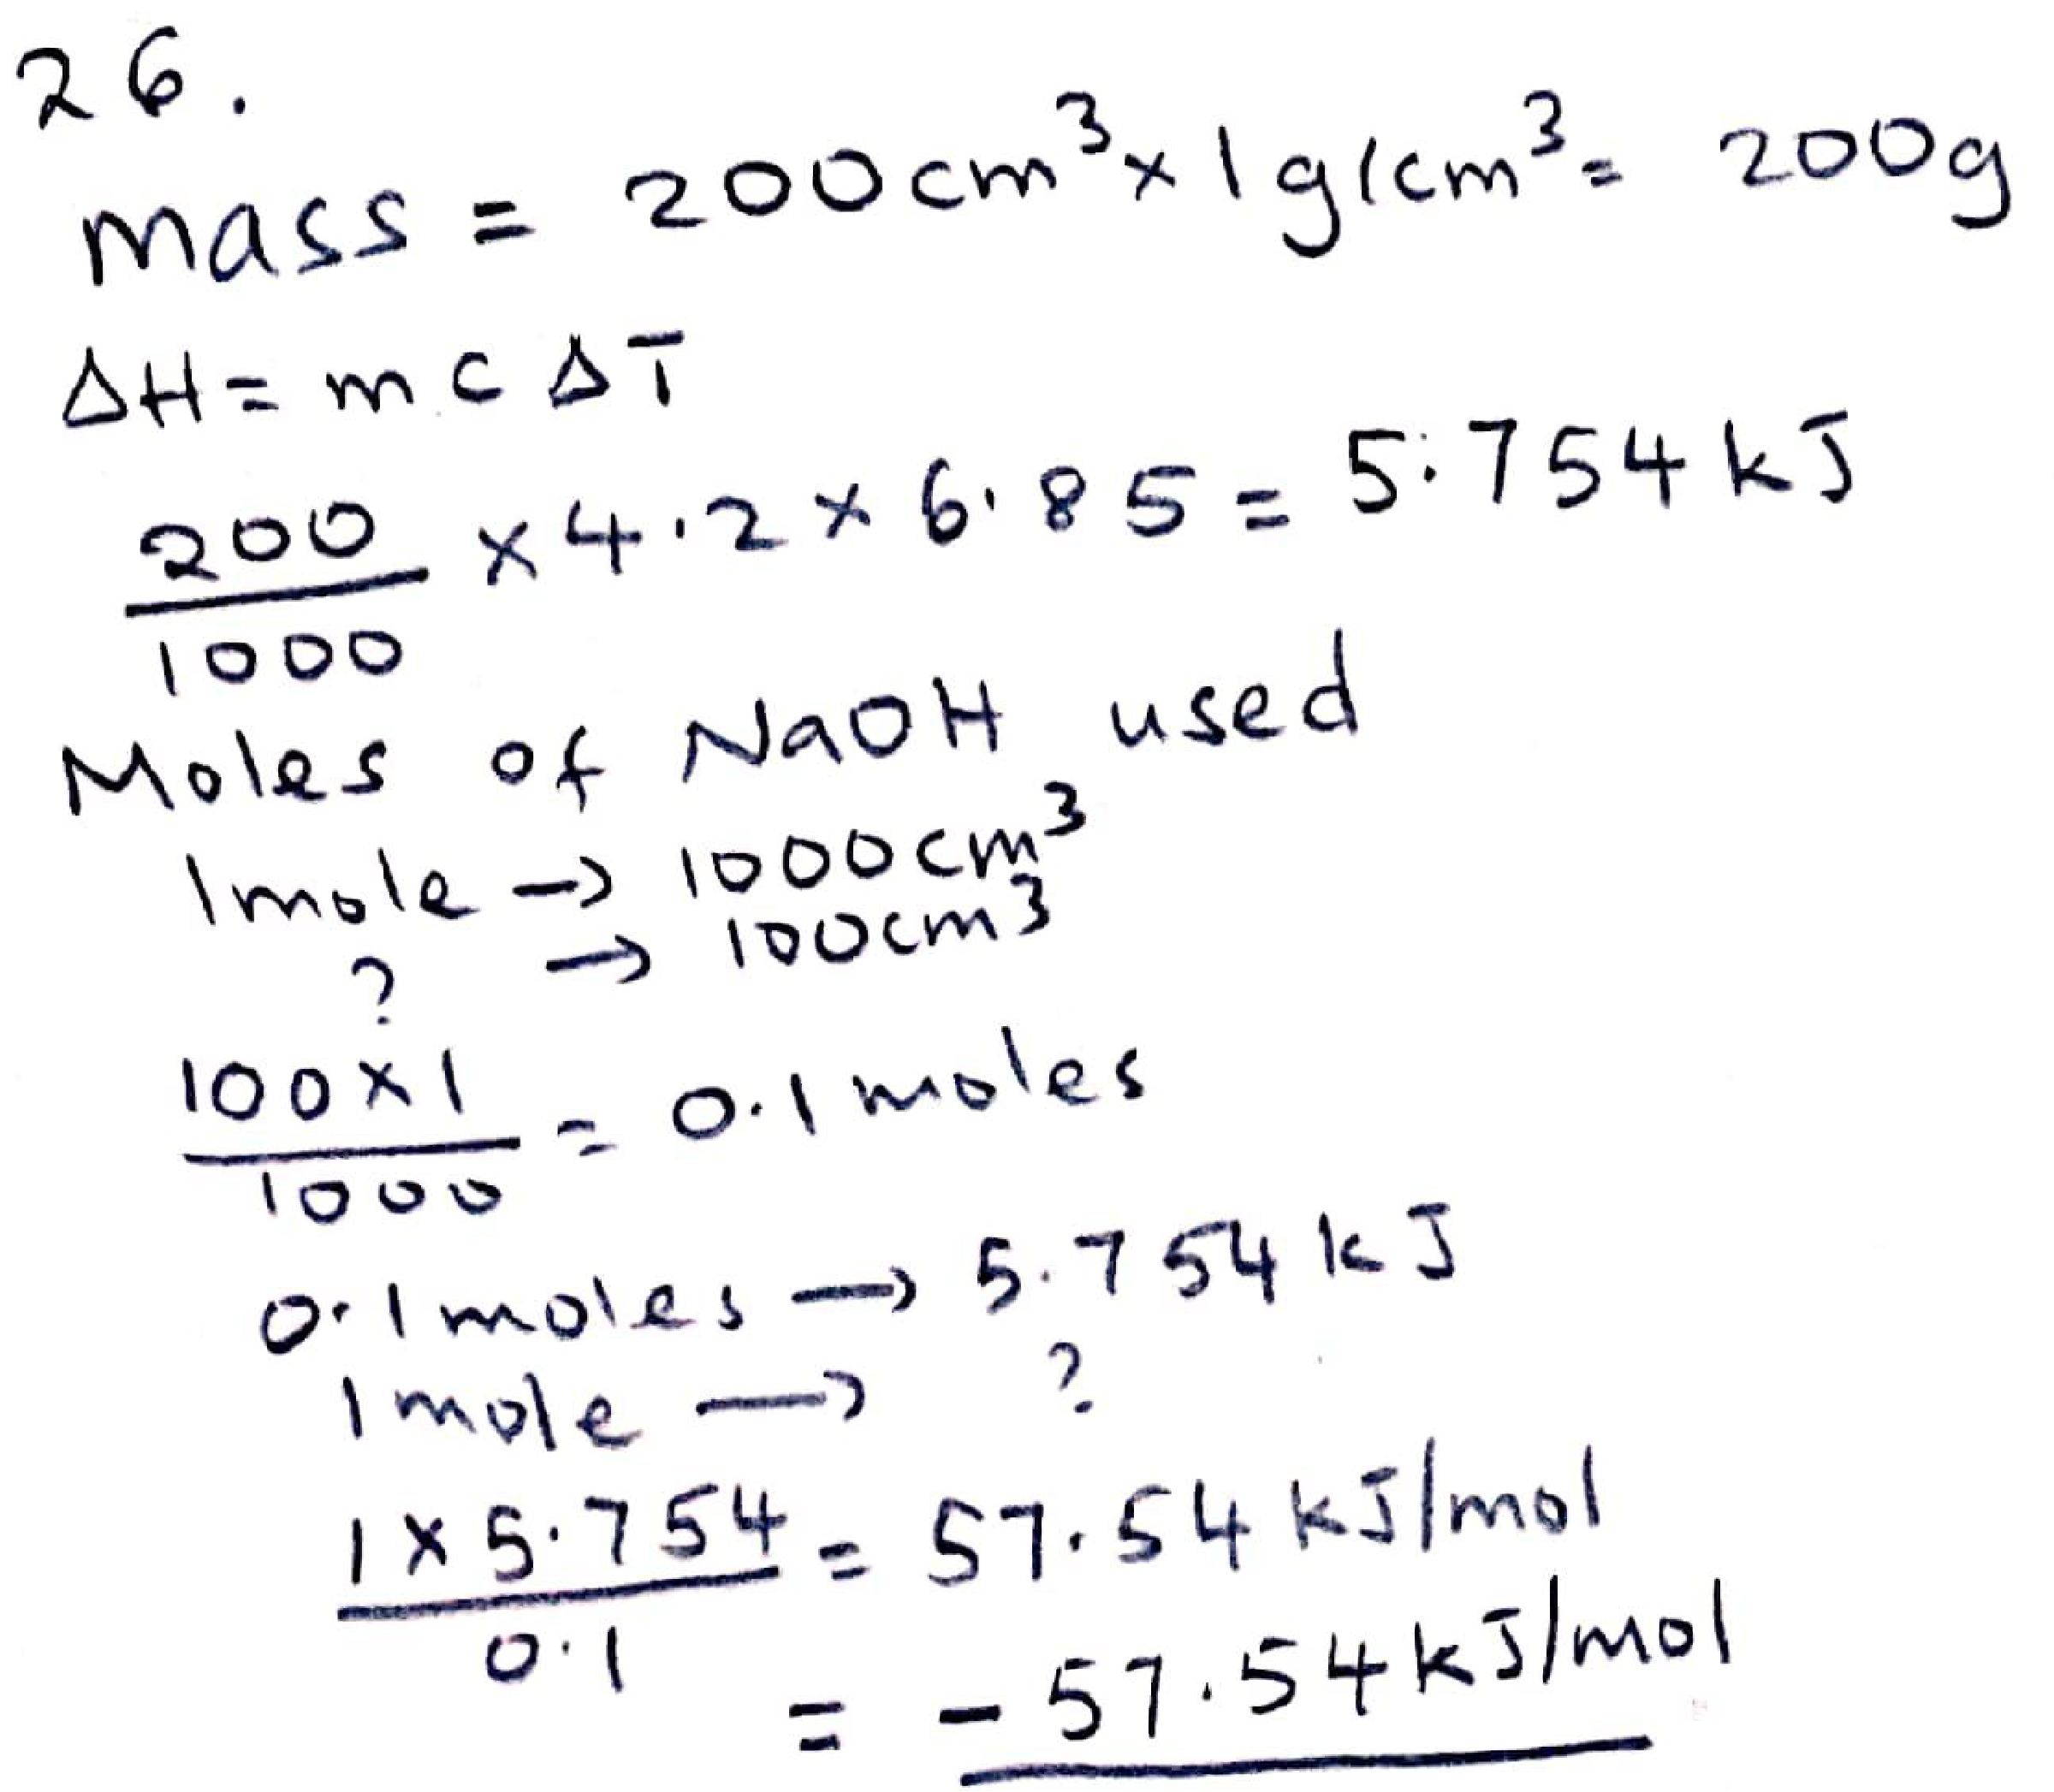 26.
mass = 200cm³ x 1g/cm³ = 200g
ΔH = mcΔT
200/1000 x 4.2 x 6.85 = 5.754kJ
Moles of NaOH used
1mole → 1000cm³
? → 100cm³
100x1/1000 = 0.1moles
0.1moles → 5.754kJ
1mole → ?
1x5.754/0.1 = 57.54kJ/mol
= -57.54kJ/mol